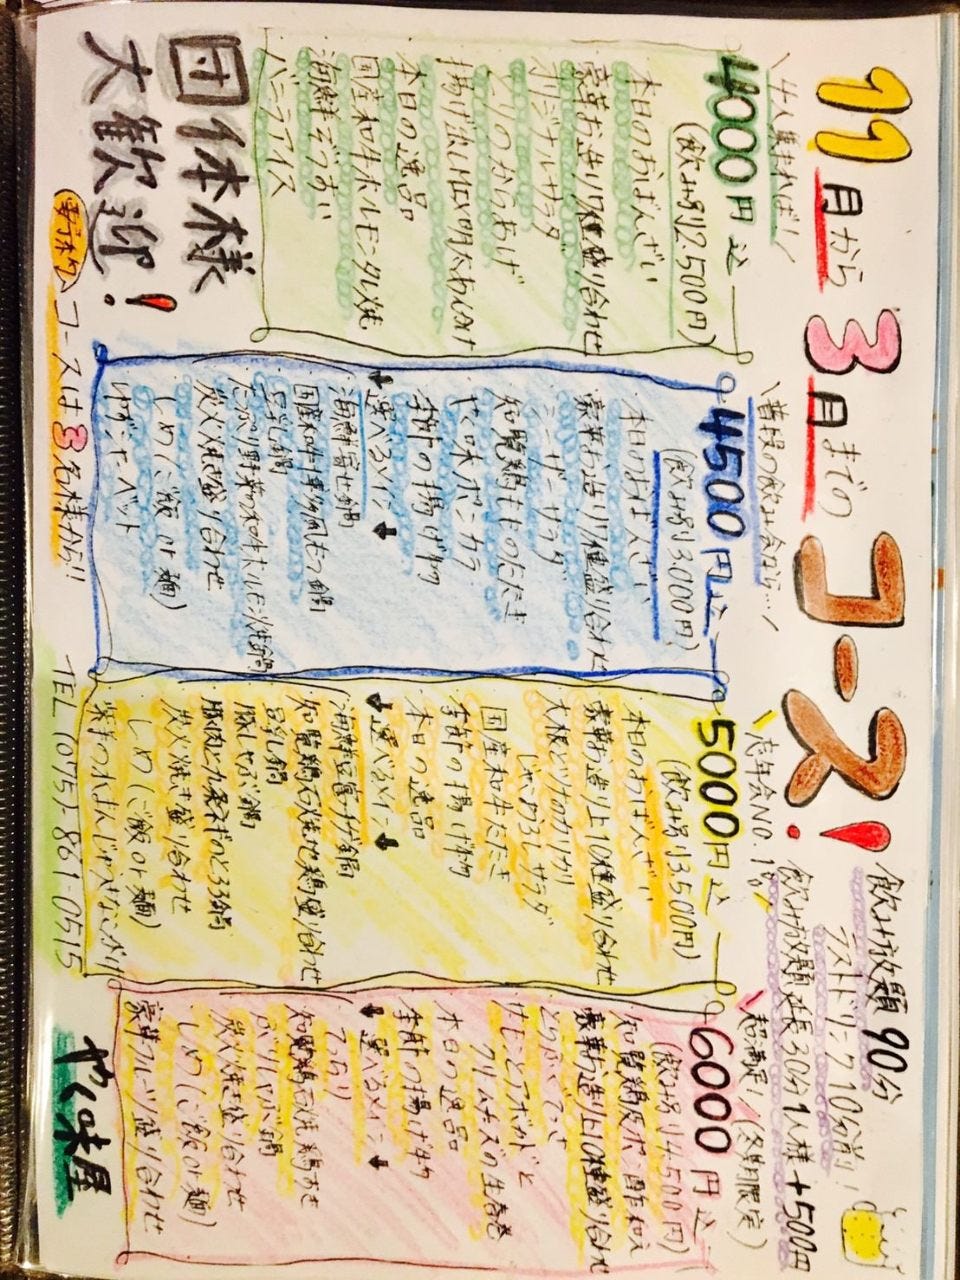 11月から3月までのコース!
飲み放題90分
ラストドリンク10分前!
飲み放題延長30分1人様+500円
\4人集まれば!/
4000円込
(飲み別2,500円)
・本日のおばんざい
・豪華お造り7種盛り合わせ
・オリジナルサラダ
・とりのからあげ
・揚げ出しMIX明太あんかけ
・本日の逸品
・国産和牛ホルモンタレ焼
・海鮮ぞうすい
・バニラアイス
\普段の飲み会なら…/
4500円込
(飲み別3,000円)
・本日のおばんざい
・豪華お造り7種盛り合わせ
・シーザーサラダ
・知覧鶏もものたたき
やく味ポンカラ
・季節の揚げ物
↓選べるメイン↓
・海鮮寄せ鍋
・国産和牛博多風もつ鍋
・豆乳鍋
・たっぷり野菜の水味ホルモン焼鍋
・炭火焼き盛り合わせ
・しめ(ご飯or麺)
・ゆずシャーベット
\忘年会NO.1!%/
5000円込
(飲み別3,500円)
・本日のおばんざい
・豪華お造り上10種盛り合わせ
・大根とツナのカリカリ
じゃがおろしサラダ
・国産和牛たたき
・季節の揚げ物
・本日の逸品
↓選べるメイン↓
・海鮮豆腐チゲ鍋
・知覧鶏石焼地鶏盛り合わせ
・豆乳鍋
・豚しゃぶ鍋
・豚肉と九条ネギのとろろ鍋
・炭火焼き盛り合わせ
・しめ(ご飯or麺)
\超満足!/(冬期限定)
6000円込
(飲み別4,500円)
・知覧鶏皮ポン酢和え
・豪華お造り上10種盛り合わせ
・とらふぐてっさ
・サーモンとアボカドと
クリームチーズの生春巻
・本日の逸品
・季節の揚げ物
↓選べるメイン↓
・てっちり
・知覧鶏石焼鶏すき
・ぶりしゃぶ鍋
・炭火焼き盛り合わせ
・しめ(ご飯or麺)
・豪華フルーツ盛り合わせ
団体様
大歓迎!
コースは3名様から!!
TEL (075)-861-0515
やく味屋